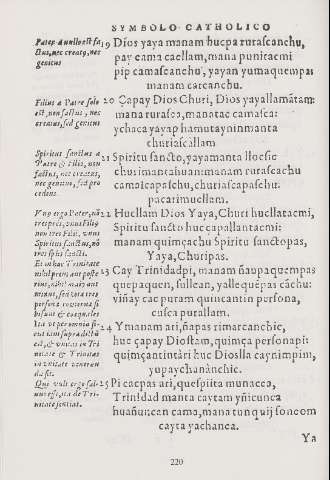 SYMBOLO CATHOLICO
Pater a nullo est fa
ctus, nec creatus, nec
genitus
19 Dios yaya manam hucpa rurascanchu,
pay cama caellam, mana punitaemi
pip camascanchu, yayan yumaquempas
manam carcanchu.
Filius a Patre solo
est, non factus, nec
creatus, sed genitus
20 Çapay Dios Churi, Dios yayallamãtam:
mana rurasca, manatac camasca:
ychaca yayap hamutaynin manta
churiascallam
Spiritus sanctus a
Patre & Filio, non
factus, nec creatus,
nec genitus, sed pro
cedens
21 Spiritu sancto, yayamanta
churimantahuan: manam rurascachu
camascapaschu, churiascapaschu:
pacarimuellam.
Vnus ergo Pater, nõ
tres patres, vnus Filius
non tres Filii, vnus
Spiritus sanctus, nõ
tres spiritus sancti.
22 Huellam Dios Yaya, Churi huellatacmi,
Spiritu sancto huc çapallantacmi:
manam quimçachu Spiritu sanctopas,
Yaya, Churipas.
Et in hac Trinitate
nihil prius aut poste
rius, nihil maius aut
minus, sed totæ tres
personæ coæternæ si
bi sunt & coæquales
23 Cay Trinidadpi, manam ñaupaquempas
quepaquen, sullcan, yallequẽpas cãchu:
viñay cac puram quimcantin persona,
cusca purallam.
Ita vt per omnia si-
cut iam supra dictũ
est, & vnitas in Tri
nitate & Trinitas
in vnitate veneran
da sit.
24 Ymanam ari, ñapas rimarcanchic,
huc çapay Diostam, quimça personapi:
quimçantintãri huc Dioslla cayninpim,
yupaychanãnchic.
Qui vult ergo sal-
uus esse, ita de Tri-
nitate sentiat.
25 Pi cacpas ari, quespiita munacca,
Trinidad manta caytam yñicunca
huañuncan cama, mana tunquij soncom
cayta yachanca.
Ya
220